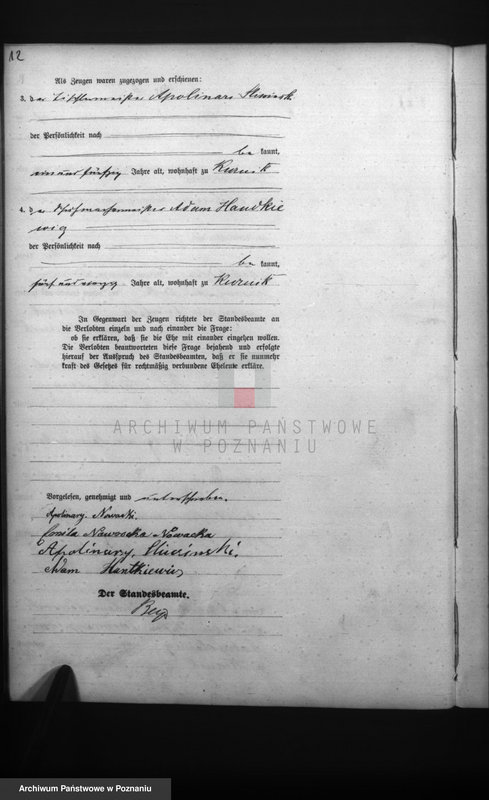 12
Als Zeugen waren zugezogen und erschienen:
3. der Tischlermeister Apolinar
der Persönlichkeit nach
be kannt,
ein und fünfzig Jahre alt, wohnhaft zu Kurnik
4. der Schuhmachermeister Adam Handkie
wicz
der Persönlichkeit nach
be kannt,
fünf und Jahre alt, wohnhaft zu Kurnik
In Gegenwart der Zeugen richtete der Standesbeamte an
die Verlobten einzeln und nach einander die Frage:
ob sie erklären, daß sie die Ehe mit einander eingehen wollen.
Die Verlobten beantworteten diese Frage bejahend und erfolgte
hierauf der Ausspruch des Standesbeamten, daß er sie nunmehr
kraft des Gesetzes für rechtmäßig verbundene Eheleute erkläre.
ARCHIWUM PAŃSTWOWE
W POZNANIU
Vorgelesen, genehmigt und unterschrieben.
Apolinary Nowacki.
Nawrocka Nowacka
Apolinary
Adam Hantkiewicz
Der Standesbeamte.
Archiwum Państwowe w Poznaniu